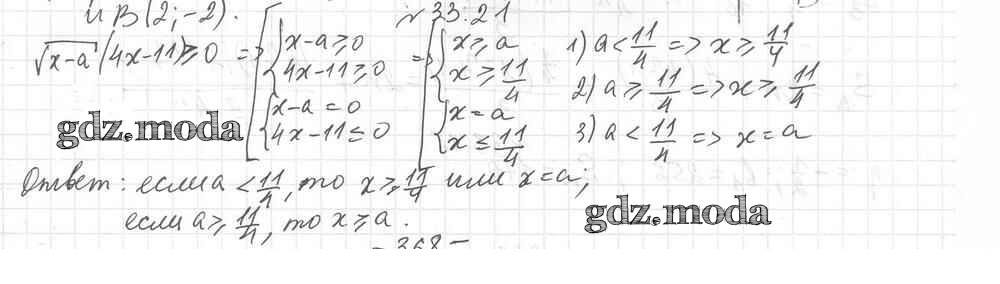 и В(2;-2).
№33.21
√(x-a) (4x-11) ≥ 0 => [ { x-a ≥ 0
4x-11 ≥ 0
{ x-a = 0
4x-11 ≤ 0
=> [ { x ≥ a
x ≥ 11/4
{ x = a
x ≤ 11/4
1) a < 11/4 => x ≥ 11/4
2) a ≥ 11/4 => x ≥ 11/4
3) a < 11/4 => x = a
gdz.moda
Ответ: если a < 11/4, то x ≥ 11/4 или x = a;
если a ≥ 11/4, то x ≥ a.
gdz.moda